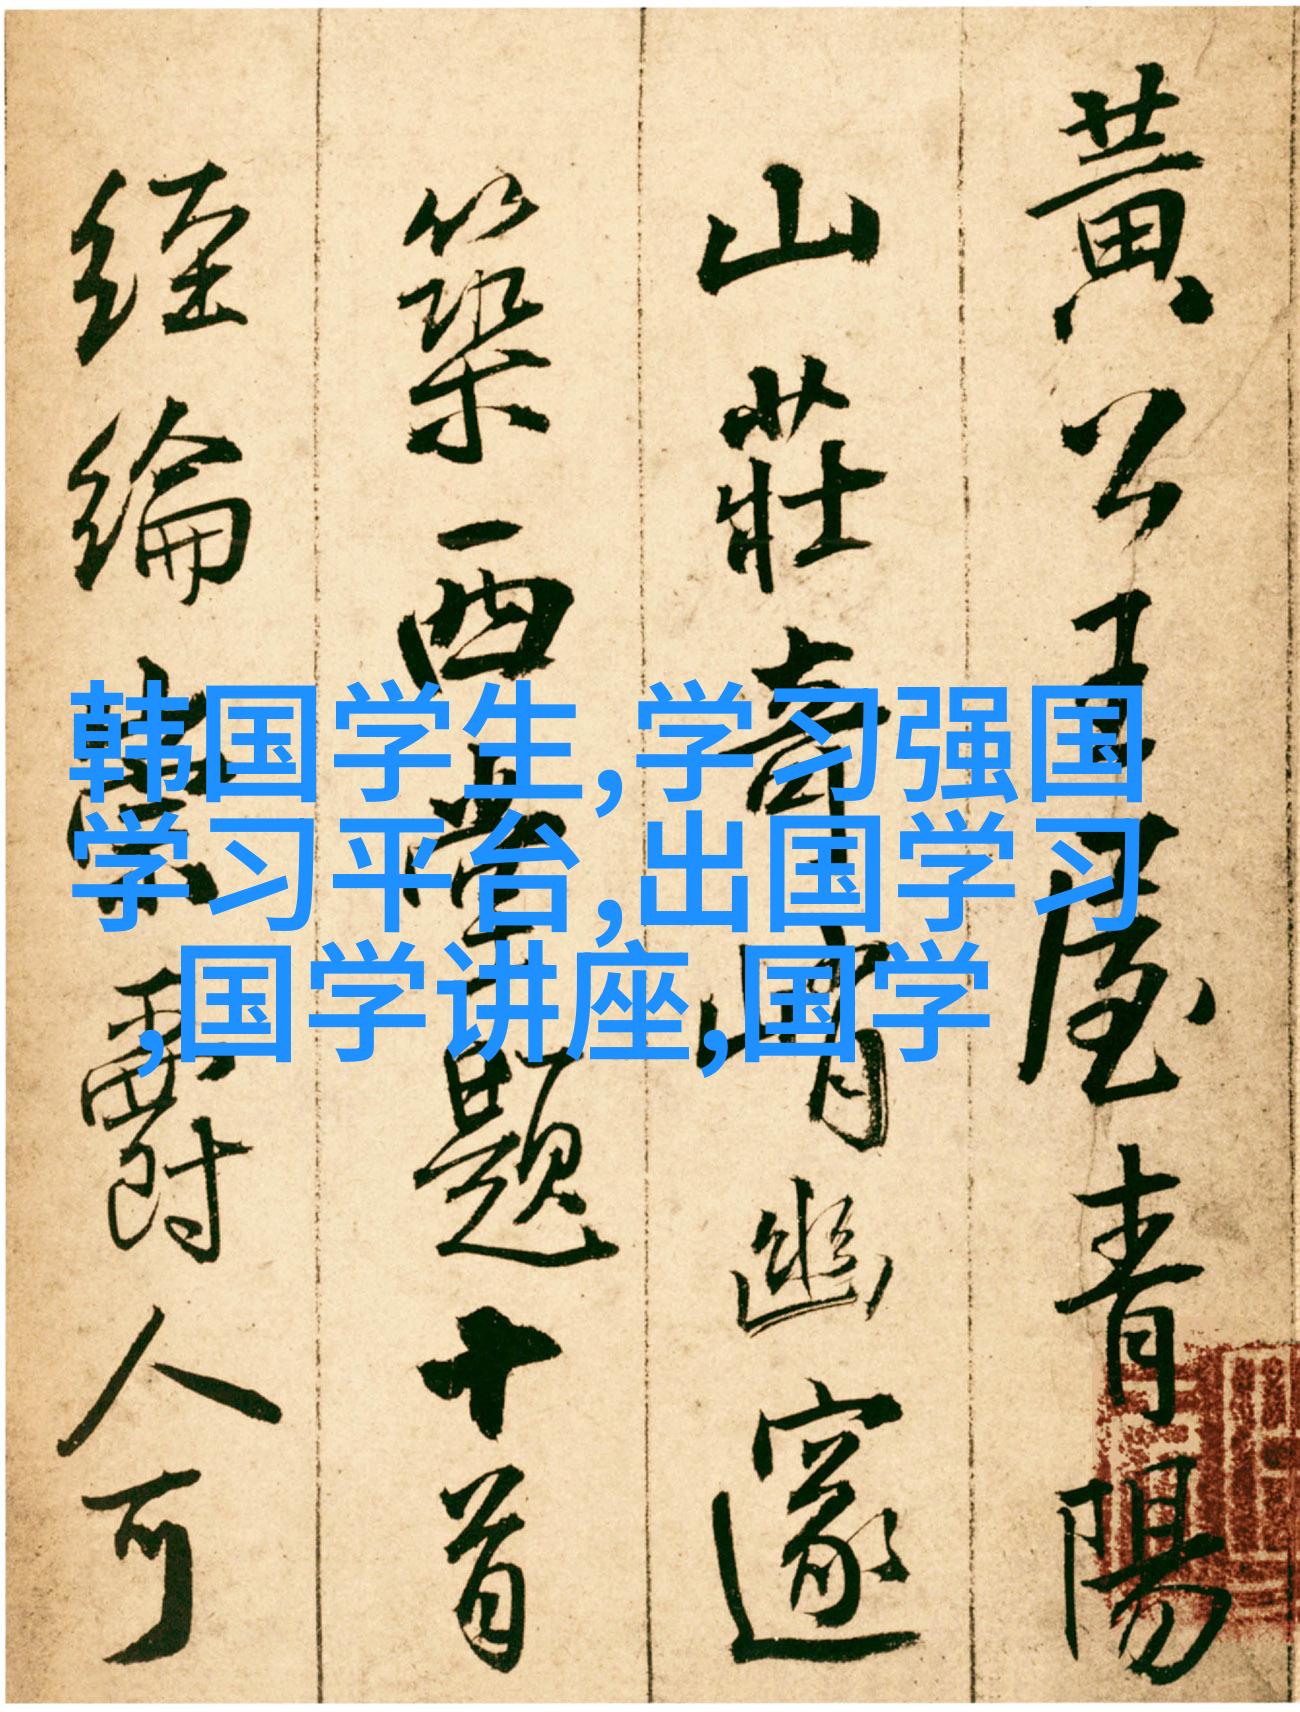 黄公王屋青陽
山莊奇峭幽邃
築西堂題十首
經綸縻爵人可
韩国学生,学习强国
学习平台,出国学习
,国学讲座,国学